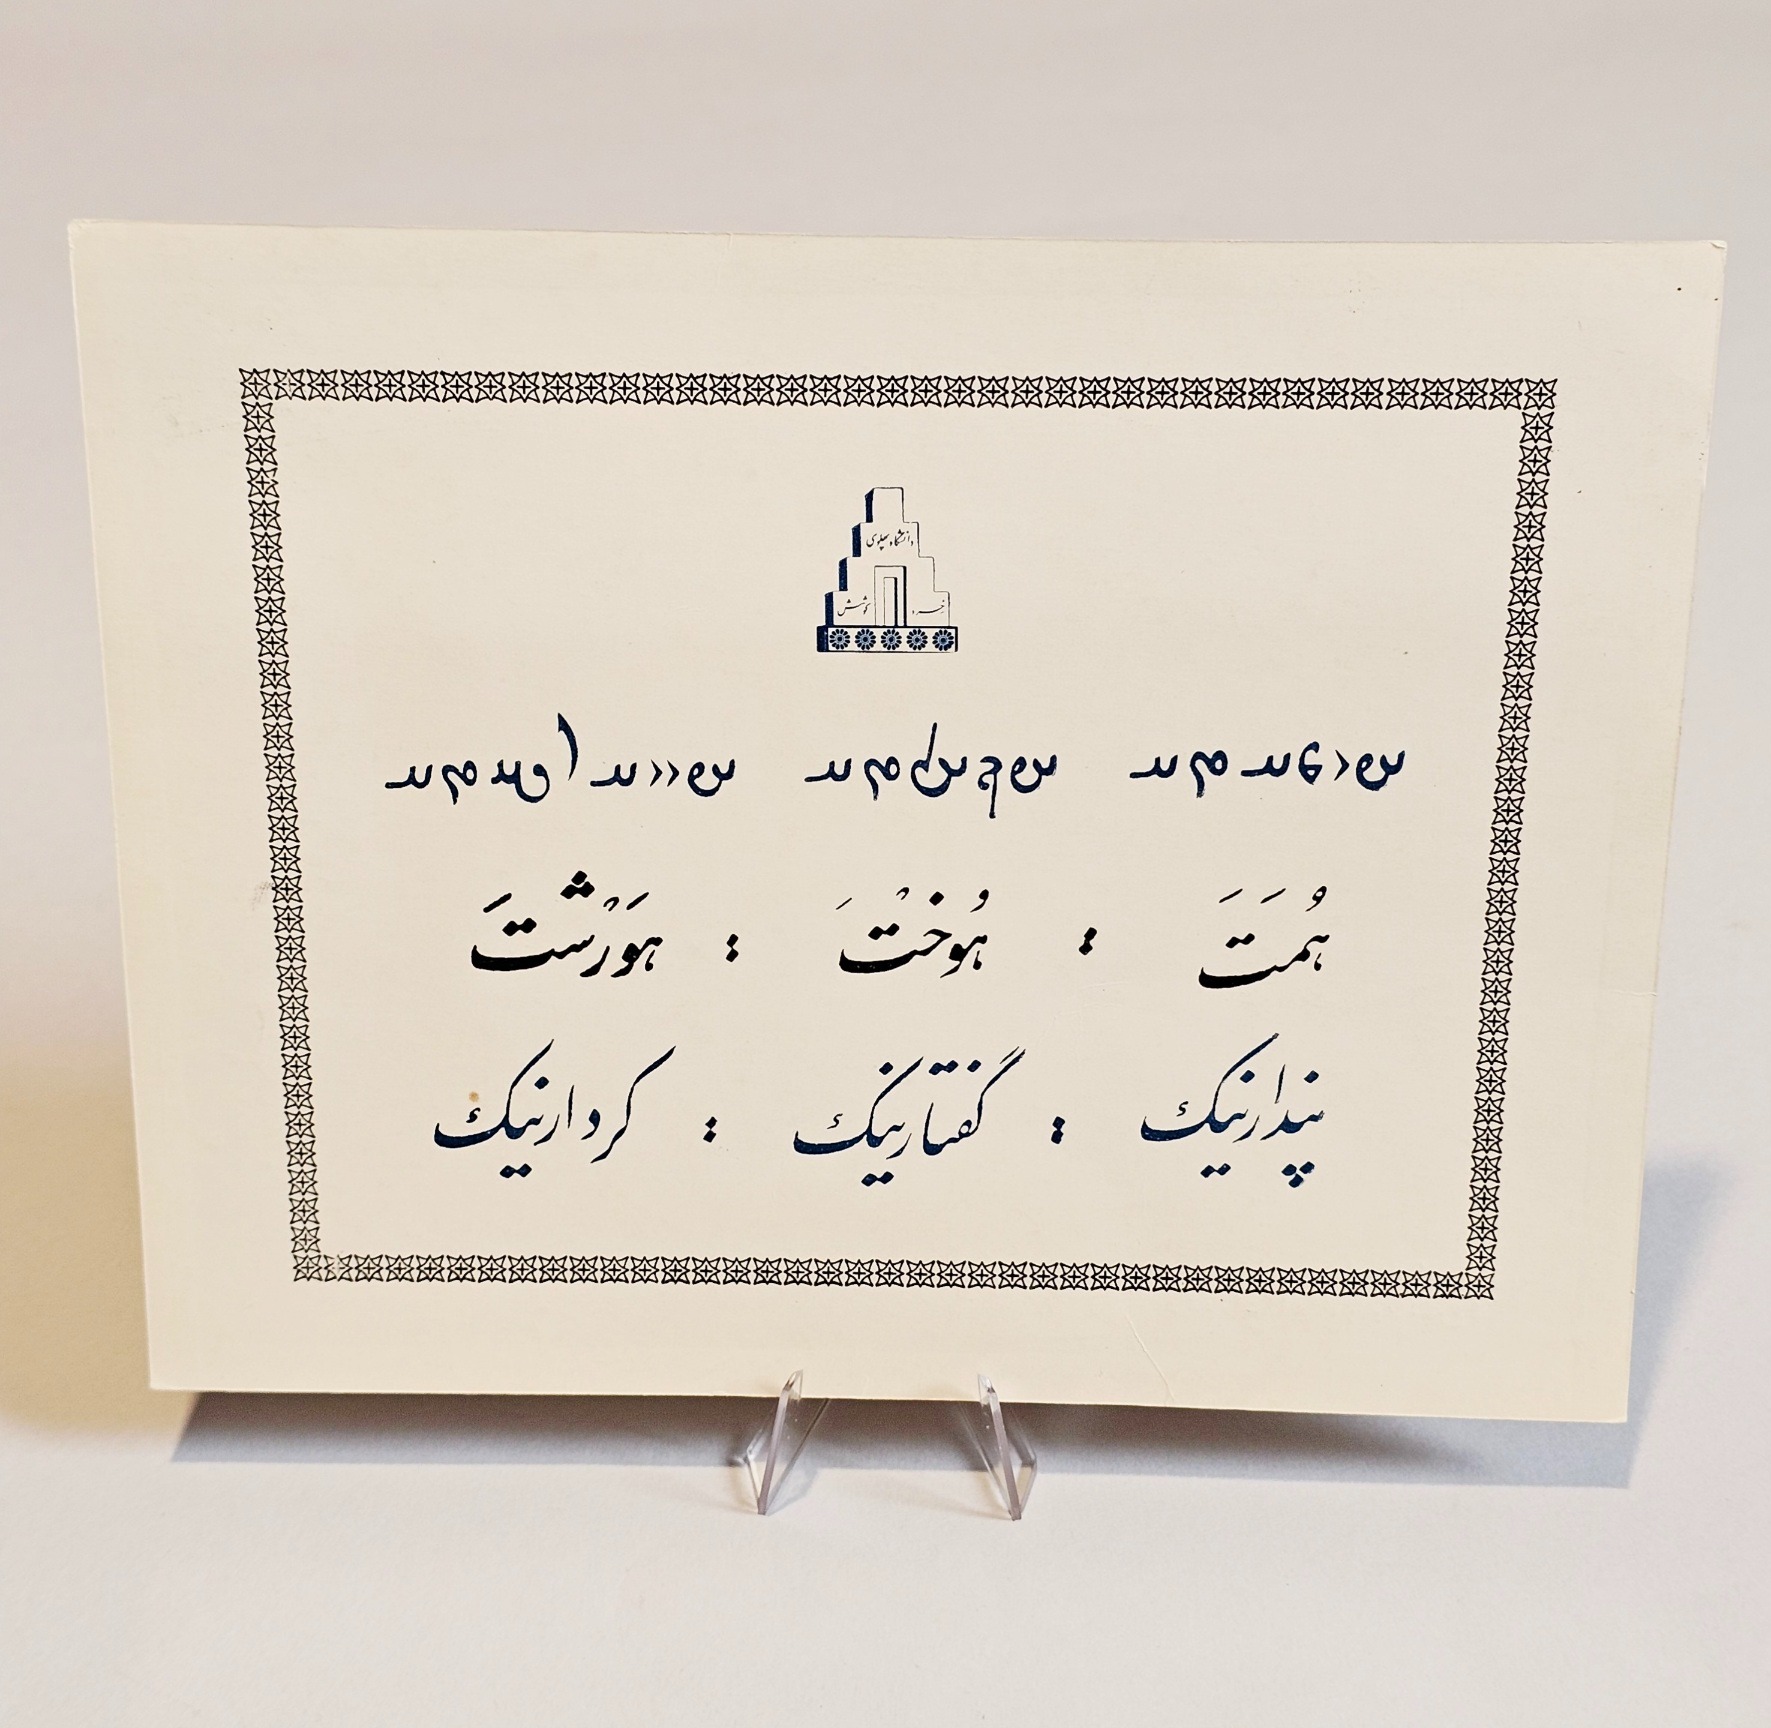 دانشگاه پهلوی
خرد کوشش
𐬵𐬎𐬨𐬀𐬙𐬀 𐬵𐬏𐬑𐬙𐬀 𐬵𐬎𐬎𐬀𐬭𐬱𐬙𐬀
هُمَتَ : هُوخْتَ : هوَرْشتَ
پندار نیک : گفتار نیک : کردار نیک